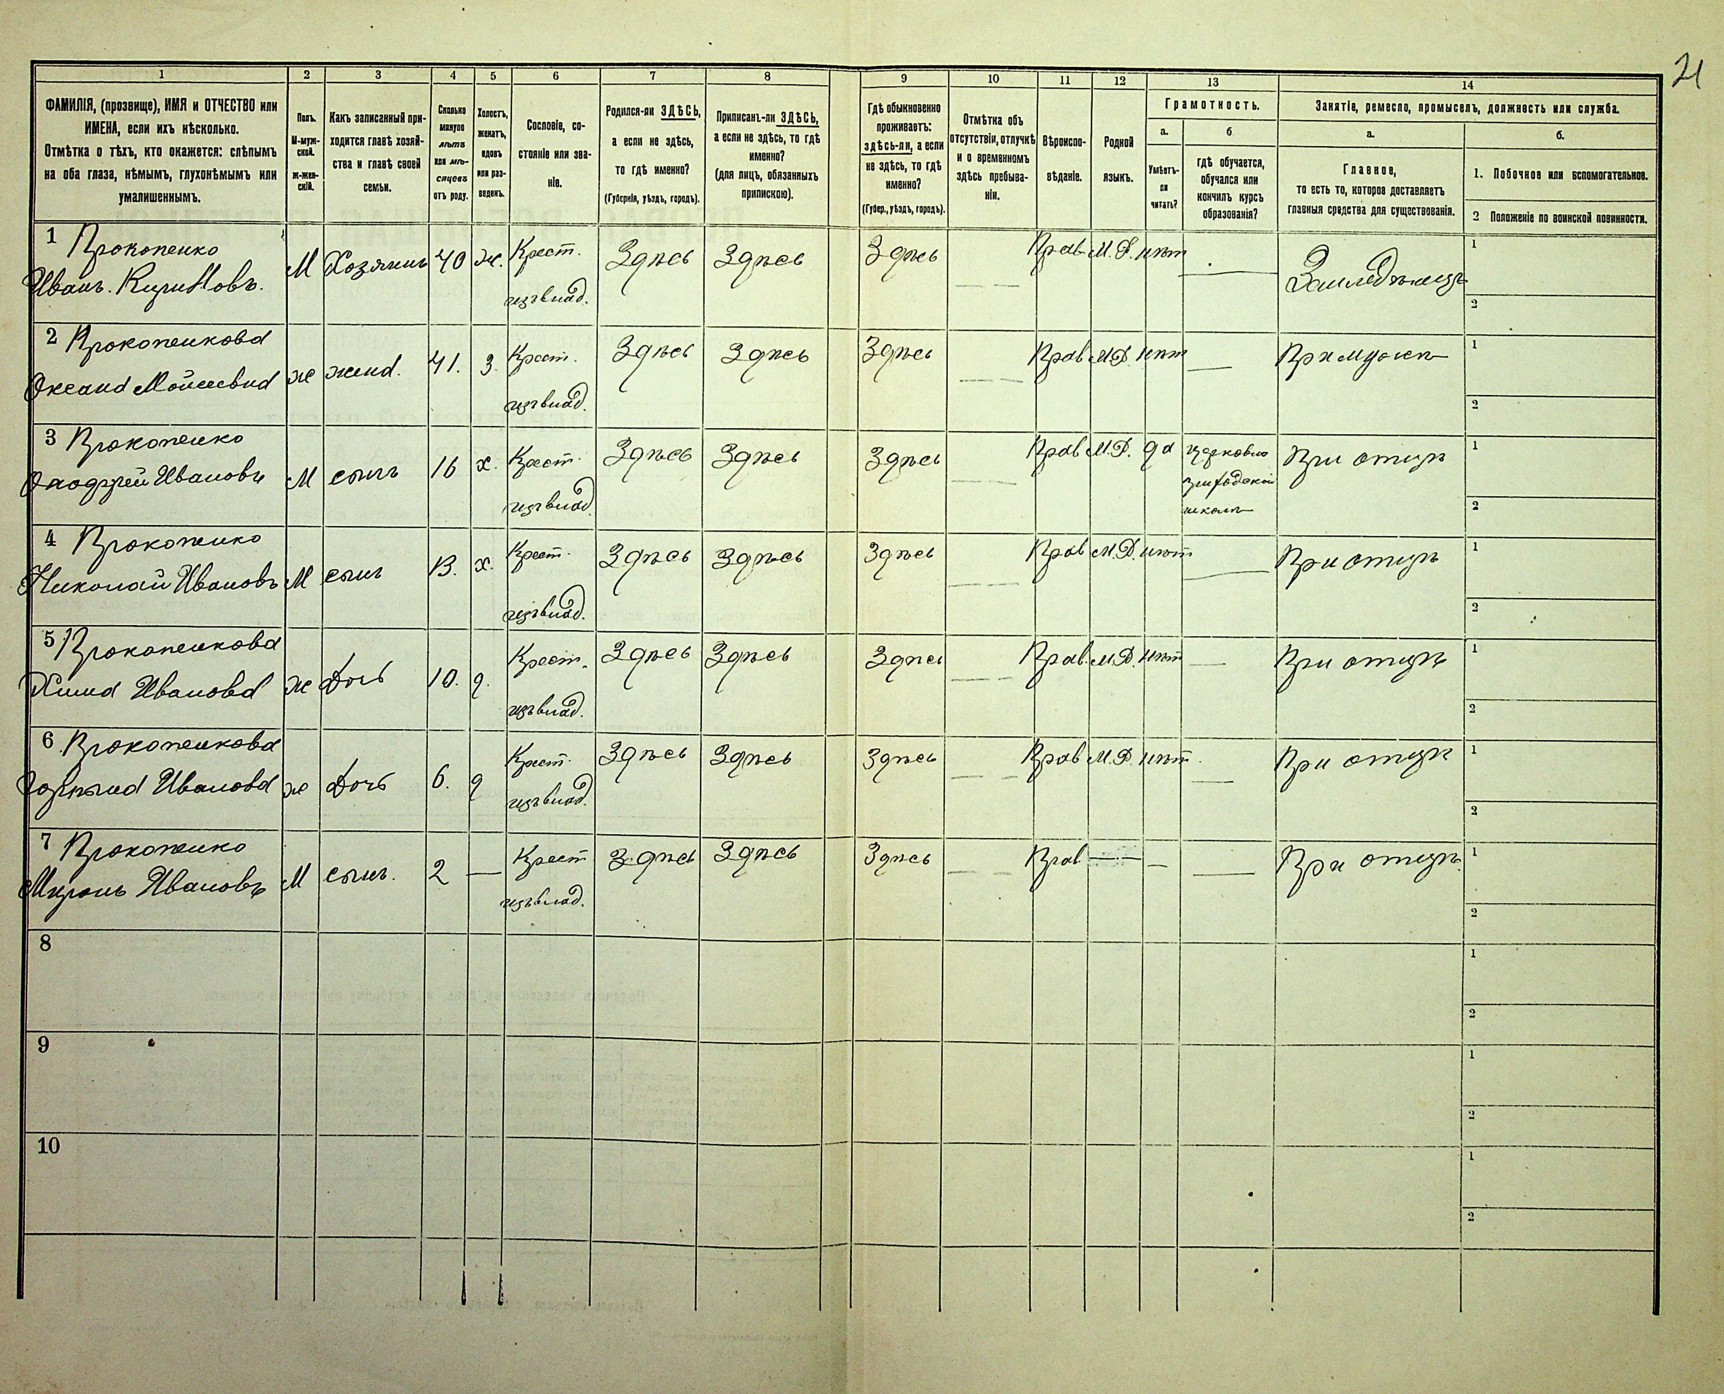 21
1 2 3 4 5 6 7 8 9 10 11 12 13 14
ФАМИЛІЯ, (прозвище), ИМЯ и ОТЧЕСТВО или
ИМЕНА, если ихъ нѣсколько.
Отмѣтка о тѣхъ, кто окажется: слѣпымъ
на оба глаза, нѣмымъ, глухонѣмымъ или
умалишеннымъ.
Полъ.
М-муж-
ской.
ж-жен-
скій.
Какъ записанный при-
ходится главѣ хозяй-
ства и главѣ своей
семьи.
Сколько
минуло
лѣтъ
или мѣ-
сяцевъ
отъ роду.
Холостъ,
женатъ,
вдовъ
или раз-
веденъ.
Сословіе, со-
стояніе или зва-
ніе.
Родился-ли ЗДѢСЬ,
а если не здѣсь,
то гдѣ именно?
(Губернія, уѣздъ, городъ).
Приписанъ-ли ЗДѢСЬ,
а если не здѣсь, то гдѣ
именно?
(для лицъ, обязанныхъ
припискою).
Гдѣ обыкновенно
проживаетъ:
здѣсь-ли, а если
не здѣсь, то гдѣ
именно?
(Губер., уѣздъ, городъ).
Отмѣтка объ
отсутствіи, отлучкѣ
и о временномъ
здѣсь пребыва-
ніи.
Вѣроиспо-
вѣданіе.
Родной
языкъ.
Грамотность.
а. б
Умѣетъ-
ли
читать?
гдѣ обучается,
обучался или
кончилъ курсъ
образованія?
Занятіе, ремесло, промыселъ, должность или служба.
а. б.
Главное,
то есть то, которое доставляетъ
главныя средства для существованія.
1. Побочное или вспомогательное.
2 Положеніе по воинской повинности.
1 Прокопенко
Иванъ. Кириловъ. М Хозяинъ 40 ж. Крест.
изъ влад. Здѣсь Здѣсь Здѣсь — — Прав М. Р. нѣт — Земледѣлецъ 1
2
2 Прокопенкова
Оксана Мойсеевна ж жена. 41. З. Крест.
изъ влад. Здѣсь Здѣсь Здѣсь — — Прав М.Р. нѣт — При мужѣ 1
2
3 Прокопенко
Ивановъ М сынъ 16 х. Крест.
изъ влад. Здѣсь Здѣсь Здѣсь — — Прав М.Р. да Церковно
школѣ При отцѣ 1
2
4 Прокопенко
Николай Ивановъ М сынъ 13. х. Крест.
изъ влад. Здѣсь Здѣсь Здѣсь — — Прав М.Р. нѣт — При отцѣ 1
2
5 Прокопенкова
Ивановна ж Дочь 10. д. Крест.
изъ влад. Здѣсь Здѣсь Здѣсь — — Прав. М.Р. нѣт — При отцѣ 1
2
6 Прокопенкова
Ивановна ж Дочь 6. д Крест.
изъ влад. Здѣсь Здѣсь Здѣсь — — Прав М.Р. нѣт. — При отцѣ 1
2
7 Прокопенко
Миронъ Ивановъ М сынъ. 2 — Крест
изъ влад. Здѣсь Здѣсь Здѣсь — — Прав — — — При отцѣ. 1
2
8 1
2
9 1
2
10 1
2